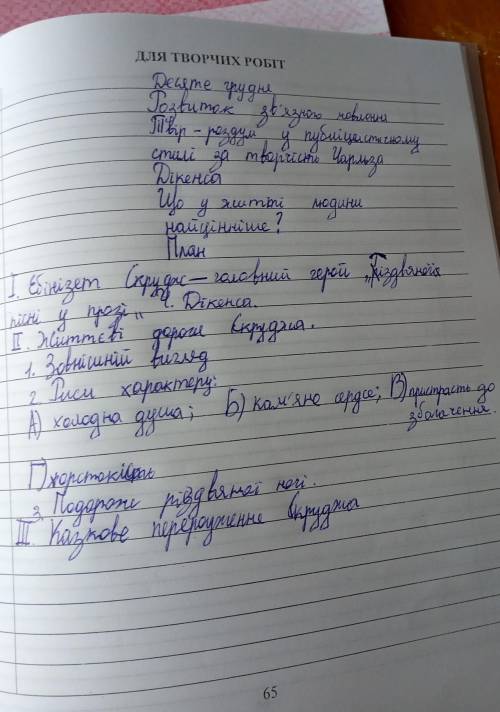 ДЛЯ ТВОРЧИХ РОБІТ
Десяте грудня
Розвиток зв'язного мовлення
Твір-роздум у публіцистичному
стилі за творчістю Чарльза
Дікенса
Що у житті людини
найцінніше?
План
I. Ебінізет Скрудж — головний герой „Різдвяної
пісні у прозі„ Ч. Дікенса.
II. Життєві дороги Скруджа.
1. Зовнішній вигляд
2. Риси характеру:
А) холодна душа; Б) кам'яне серце; В) пристрасть до
збагачення.
Г) жорстокість
3. Подорожі різдвяної ночі.
III Казкове переродження Скруджа
65